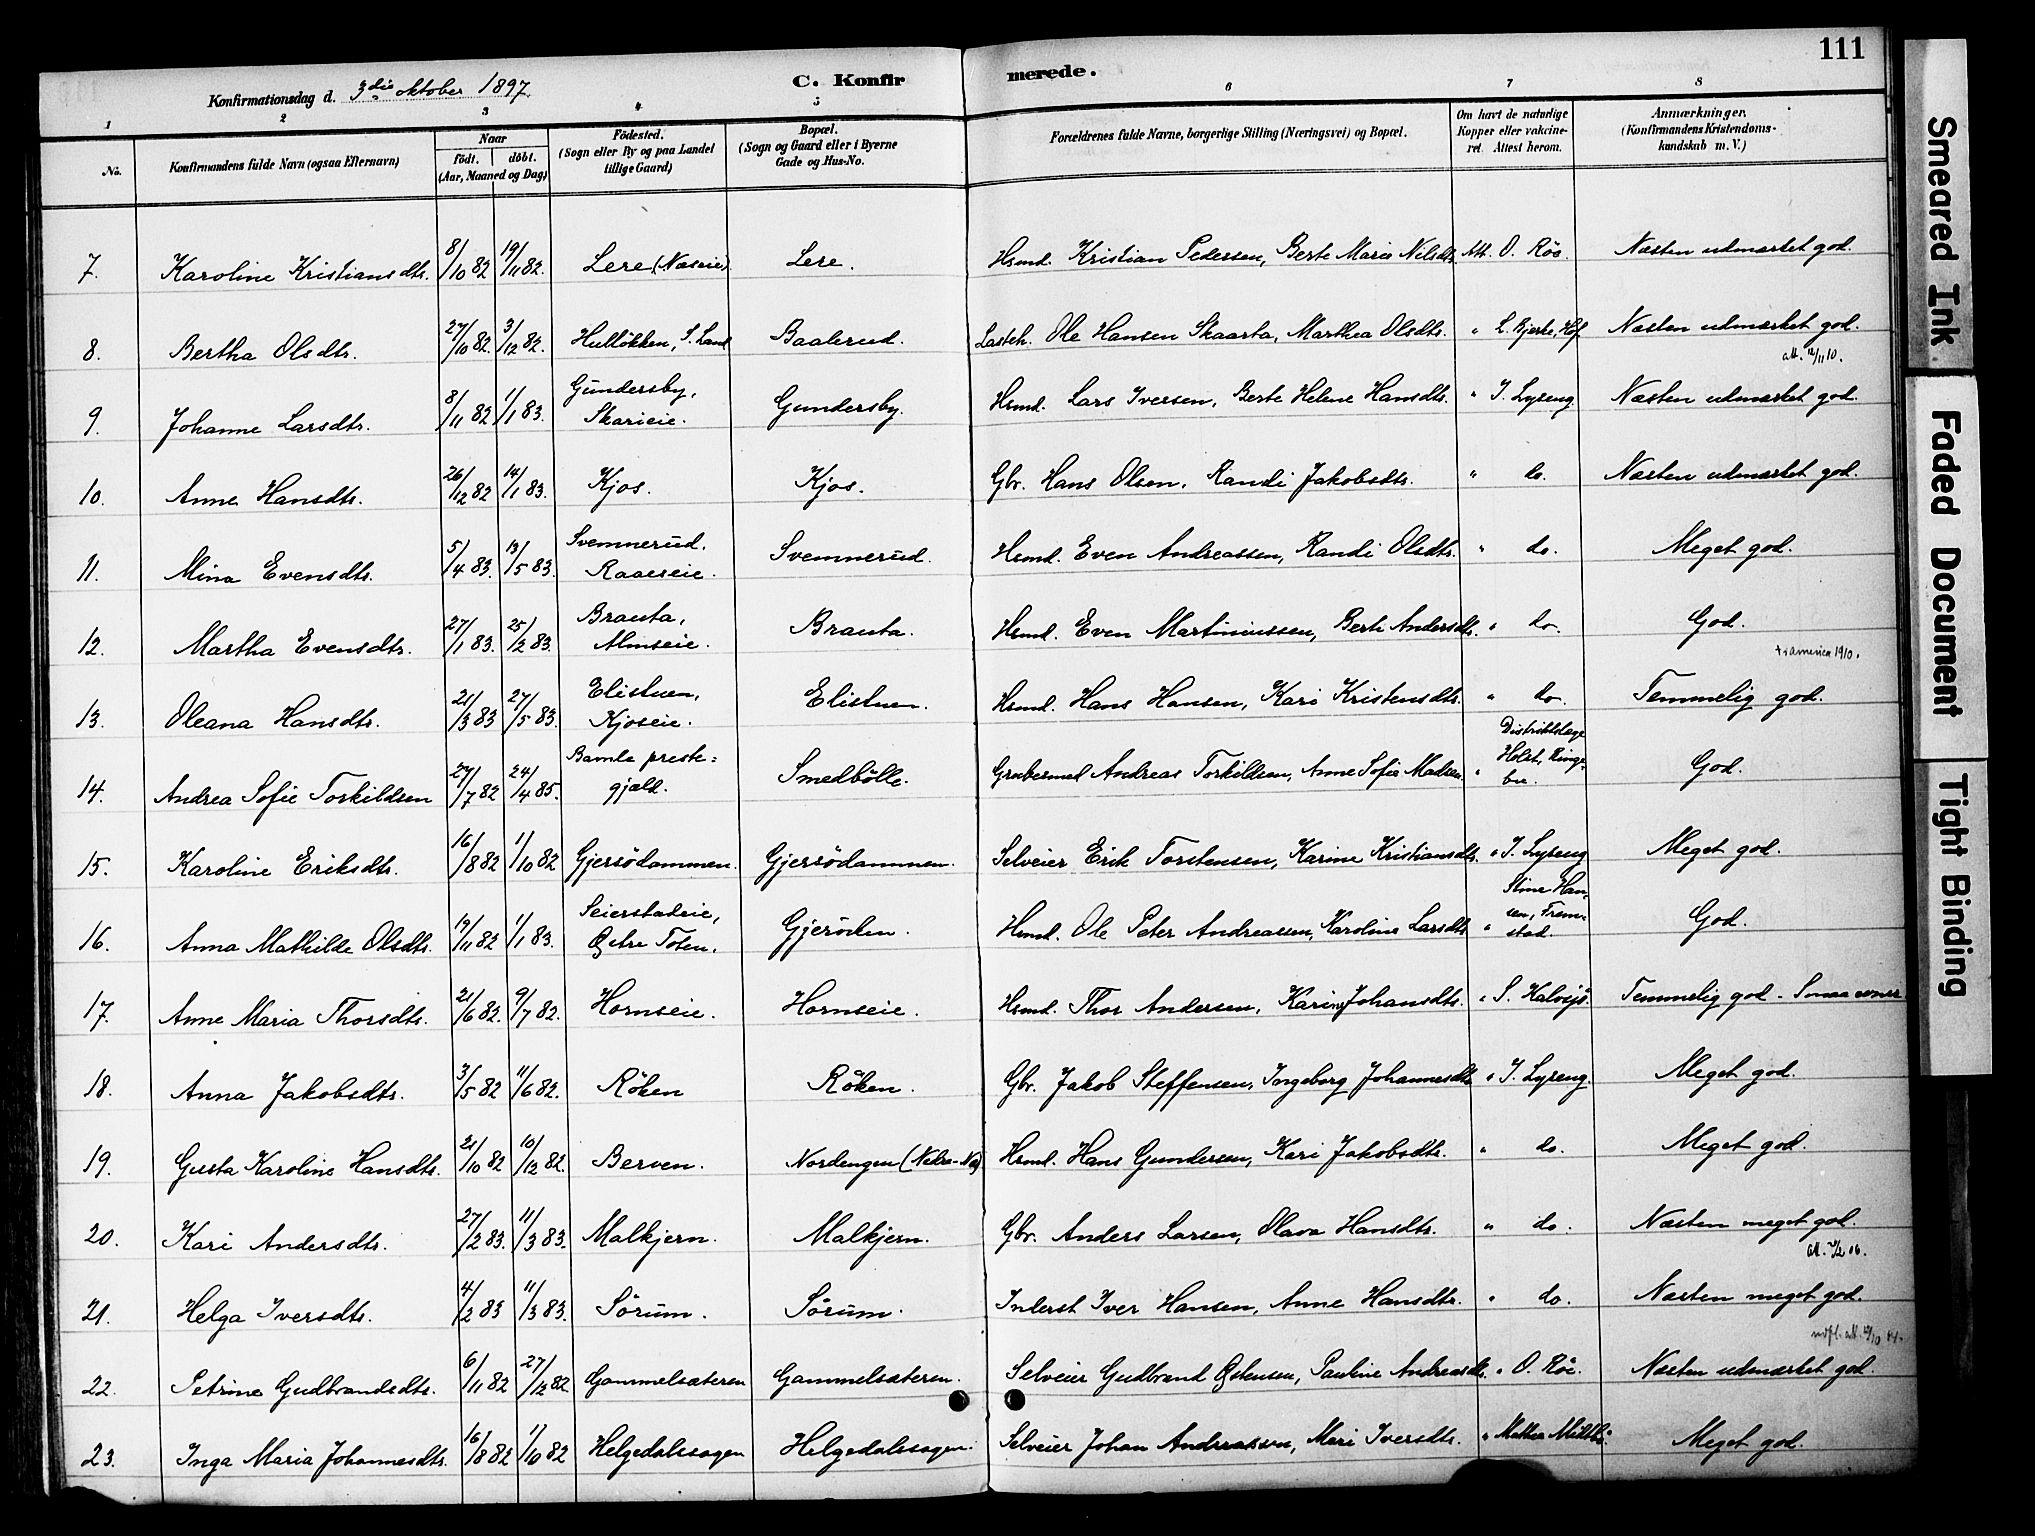 111
Konfirmationsdag d. 3die oktober 1897.
C. Konfir
merede.
1 2 3 4 5 6 7 8
No. Konfirmandens fulde Navn (ogsaa Efternavn) Naar födt. döbt. (Aar, Maaned og Dag) Födested. (Sogn eller By og paa Landet tillige Gaard) Bopæl. (Sogn og Gaard eller i Byerne Gade og Hus-No. Forældrenes fulde Navne, borgerlige Stilling (Næringsvei) og Bopæl. Om havt de naturlige Kopper eller vakcineret. Attest herom. Anmærkninger. (Konfirmandens Kristendomskundskab m. V.)
7. Karoline Kristiansdtr. 8/10 82 19/11 82. Lere (Næseie) Lere. Hsmd. Kristian Pedersen, Berte Marie Nilsdtr. Att. O. Röe. Næsten udmærket god.
8. Bertha Olsdtr. 27/10 82. 3/12 82. Hulløkken, S. Land Baalerud. Ole Hansen Skaarta, Marthea Olsdtr. " L. Bjerke, Hof. Næsten udmærket god.
9. Johanne Larsdtr. 8/11 82 1/1 83. Gundersby, Skarieie. Gundersby. Hsmd. Lars Iversen, Berte Helene Hansdtr. " I. Lyseng Næsten udmærket god.
10. Anne Hansdtr. 26/12 82 14/1 83. Kjos. Kjos. Gbr. Hans Olsen, Randi Jakobsdtr. " do. Næsten udmærket god.
11. Mina Evensdtr. 5/4 83. 13/5 83. Svemmerud, Raaeseie. Svemmerud. Hsmd. Even Andreassen, Randi Olsdtr. " do. Meget god.
12. Martha Evensdtr. 27/1 83. 25/2 83. Brauta, Almseie. Brauta. Hsmd. Even Martiniussen, Berte Andersdtr. " do. God.
+ i america 1910.
13. Oleana Hansdtr. 21/3 83 27/5 83. Elistuen, Kjoseie. Elistuen. Hsmd. Hans Hansen, Kari Kristensdtr. " do. Temmelig god.
14. Andrea Sofie Torkildsen 27/7 82 24/4 85. Bamle prestegjæld. Smedbölle. Grubermed Andreas Torkildsen, Anne Sofie Madsen. " Distriktslæge Holst, Ringebu. God.
15. Karoline Eriksdtr. 16/8 82 1/10 82 Gjersödammen. Gjersödammen. Selveier Erik Torstensen, Karine Kristiansdtr. " I. Lyseng Meget god.
16. Anna Mathilde Olsdtr. 19/11 82 1/1 83. Seierstadeie, Østre Toten. Gjeröden. Hsmd. Ole Peter Andreassen, Karoline Larsdtr " Stine Hansen, Fremstad. God.
17. Anne Maria Thorsdtr. 21/6 82. 9/7 82. Hornseie. Hornseie. Hsmd. Thor Andersen, Karin Johansdtr. " Temmelig god -
18. Anna Jakobsdtr. 3/5 82 11/6 82. Röken Röken. Gbr. Jakob Steffensen, Ingeborg Johannesdtr " I. Lyseng. Meget god.
19. Gusta Karoline Hansdtr. 21/10 82 10/12 82. Berven. Nordengen Hsmd. Hans Gundersen, Kari Jakobsdtr. " do. Meget god.
20. Kari Andersdtr. 27/2 83. 11/3 83. Malkjern. Malkjern. Gbr. Anders Larsen, Olava Hansdtr. " do. Næsten meget god.
21. Helga Iversdtr. 4/2 83 11/3 83. Sörum. Sörum. Inderst Iver Hansen, Anne Hansdtr. " do. Næsten meget god.
22. Petrine Gudbrandsdtr. 6/11 82 27/12 82 Gammelsæteren Gammelsæteren. Selveier Gudbrand Østensen, Pauline Andreasdtr. " O. Röe. Næsten udmærket god.
23. Inga Maria Johannesdtr. 16/8 82 1/10 82 Helgedalssagen Helgedalssagen. Selveier Johan Andreassen, Mari Iversdtr. " Meget god.
Smeared Ink
Faded Document
Tight Binding